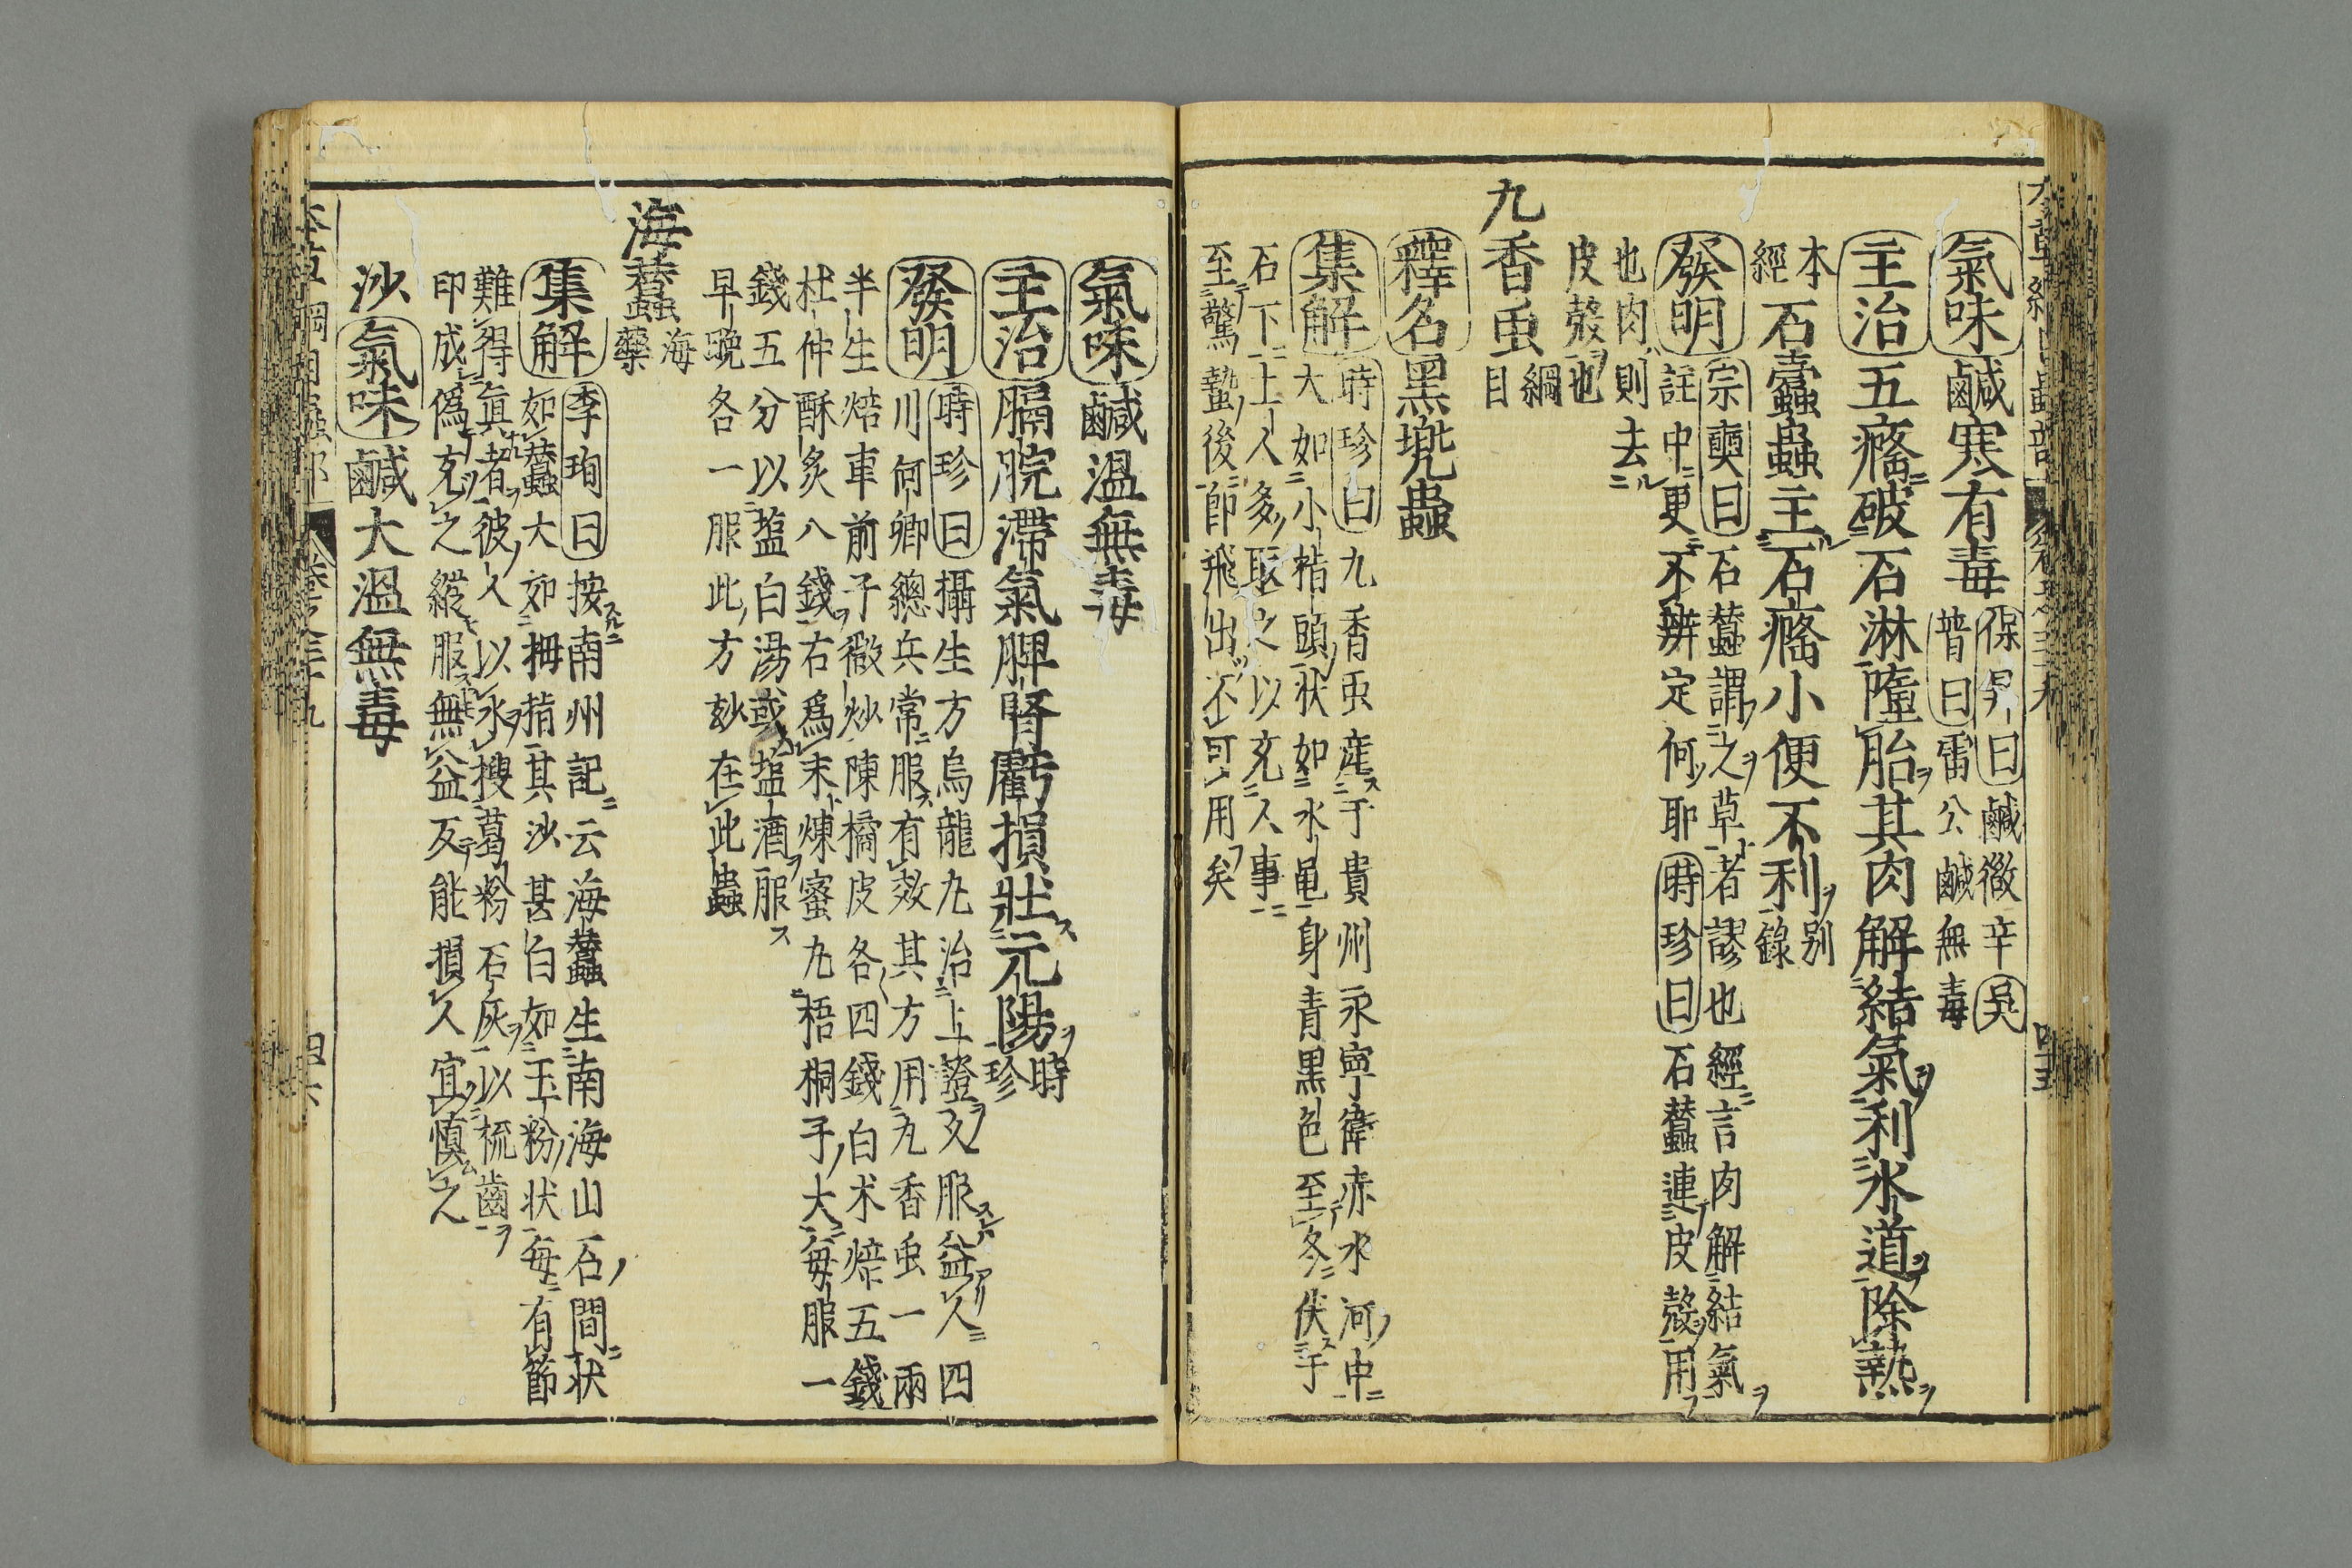 氣味鹹寒有毒保昇曰鹹微辛吳
普曰雷公鹹無毒
主治五癃破石淋墮胎其肉解結氣利水道除熱
本
經石蠹蟲主石癃小便不利別
錄
發明宗奭曰石蠶謂之草者謬也經言肉解結氣
註中更不辨定何耶時珍曰石蠶連皮殼用
也肉則去
皮殼也
九香虫綱
目
釋名黑兜蟲
集解時珍曰九香虫産于貴州永寧衛赤水河中
大如小指頭狀如水黽身青黒色至冬伏于
石下土人多取之以充人事
至驚蟄後即飛出不可用矣
氣味鹹溫無毒
主治膈脘滯氣脾腎虧損壯元陽時
珍
發明時珍曰攝生方烏龍丸治上證久服益人四
川何卿總兵常服有效其方用九香虫一兩
半生焙車前子微炒陳橘皮各四錢白术焙五錢
杜仲酥炙八錢右爲末煉蜜丸梧桐子大每服一
錢五分以鹽白湯或塩酒服
早晚各一服此方玅在此蟲
海蠶海
藥
集解李珣曰按南州記云海蠶生南海山石間状
如蠶大如拇指其沙甚白如玉粉状每有節
難得真者彼人以水搜葛粉石灰以梳齒
印成僞充之縱服無益反能損人宜慎之
沙氣味鹹大溫無毒